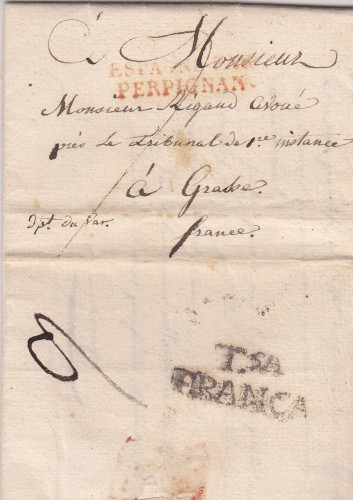 à Monsieur
ESPAGNE PAR
PERPIGNAN
Monsieur Rigaud avoué
près le tribunal de 1.re instance
à Grasse.
dpt. du Var.
france.
T.SA
FRANCA